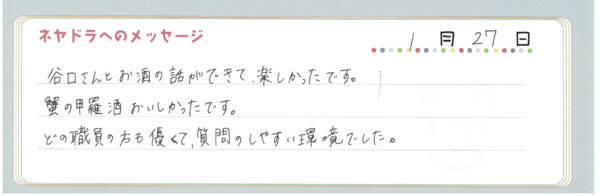 ネヤドラへのメッセージ
1月27日
谷口さんとお酒の話ができて、楽しかったです。
蟹の甲羅酒おいしかったです。
どの職員の方も優くて、質問のしやすい環境でした。